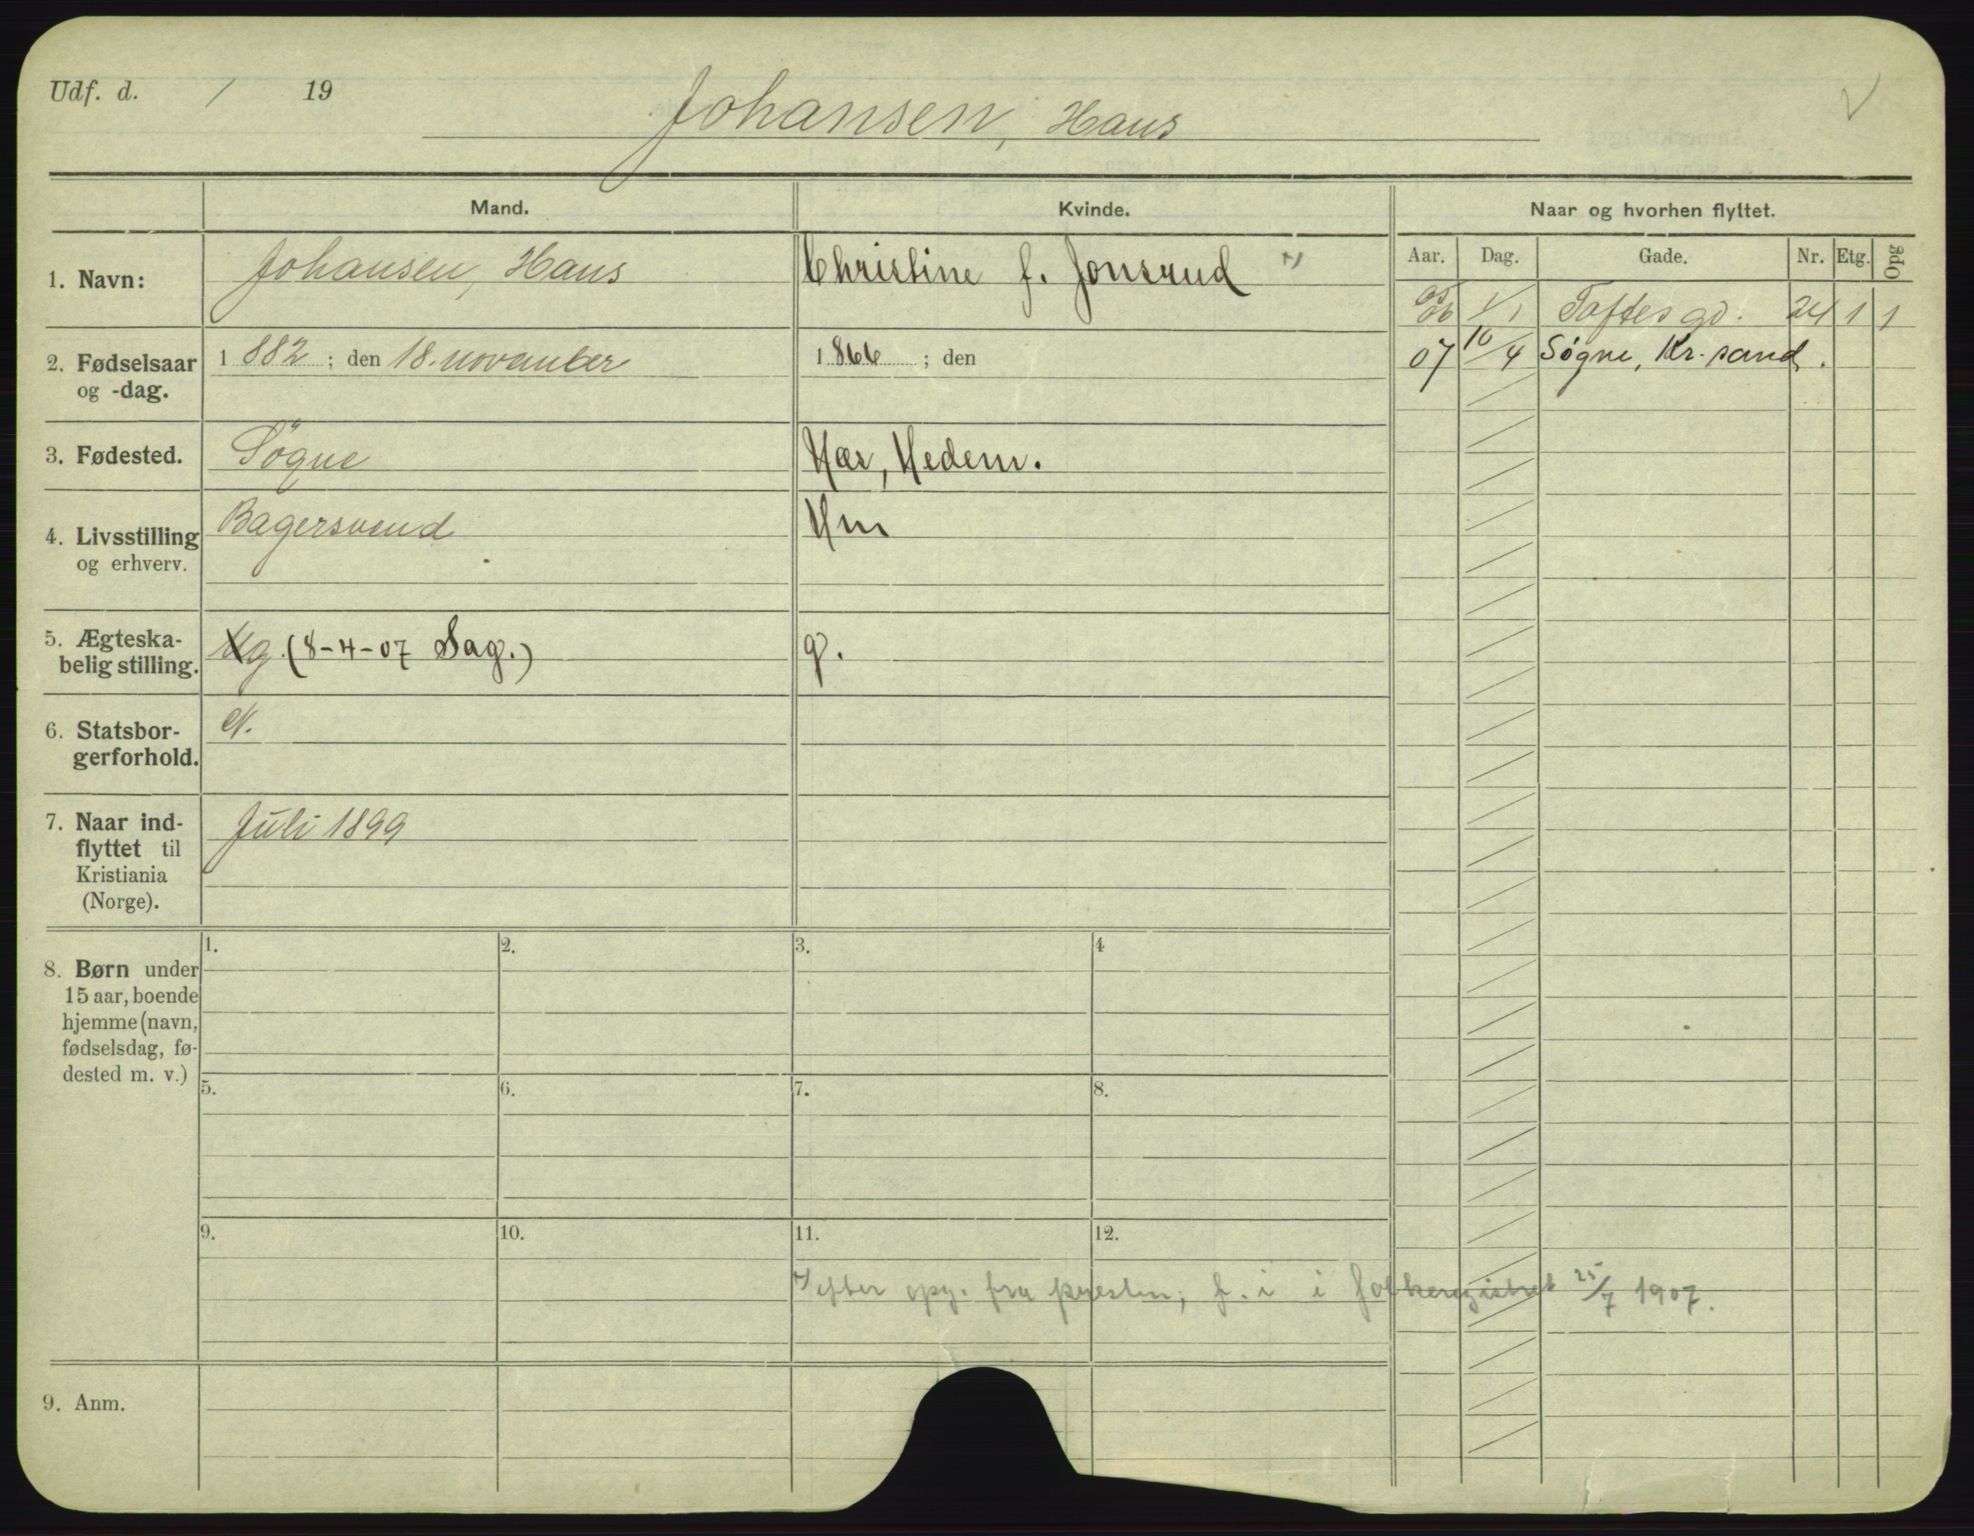 Udf. d. / 19
Johansen, Hans
Mand.
Kvinde.
Naar og hvorhen flyttet.
Aar. Dag. Gade. Nr. Etg. Opg
1. Navn: Johansen, Hans
Christine f. Jonsrud
06 1/1 Toftes gd. 24 1 1
07 10/4 Søgne, Kr.sand.
2. Fødselsaar og -dag.
1882; den 18. november
1866; den
3. Fødested. Søgne
Hær, Hedem.
4. Livsstilling og erhverv.
Bagersvend
Hm
5. Ægteska-
belig stilling.
Ug. (8-4-07 Sag.)
g.
6. Statsbor-
gerforhold.
N.
7. Naar ind-
flyttet til
Kristiania
(Norge).
Juli 1899
8. Børn under
15 aar, boende
hjemme (navn,
fødselsdag, fø-
dested m. v.)
1. 2. 3. 4
5. 6. 7. 8.
9. 10. 11. 12.
efter opg. fra presten; f. i i folkeregistret 25/7 1907.
9. Anm.